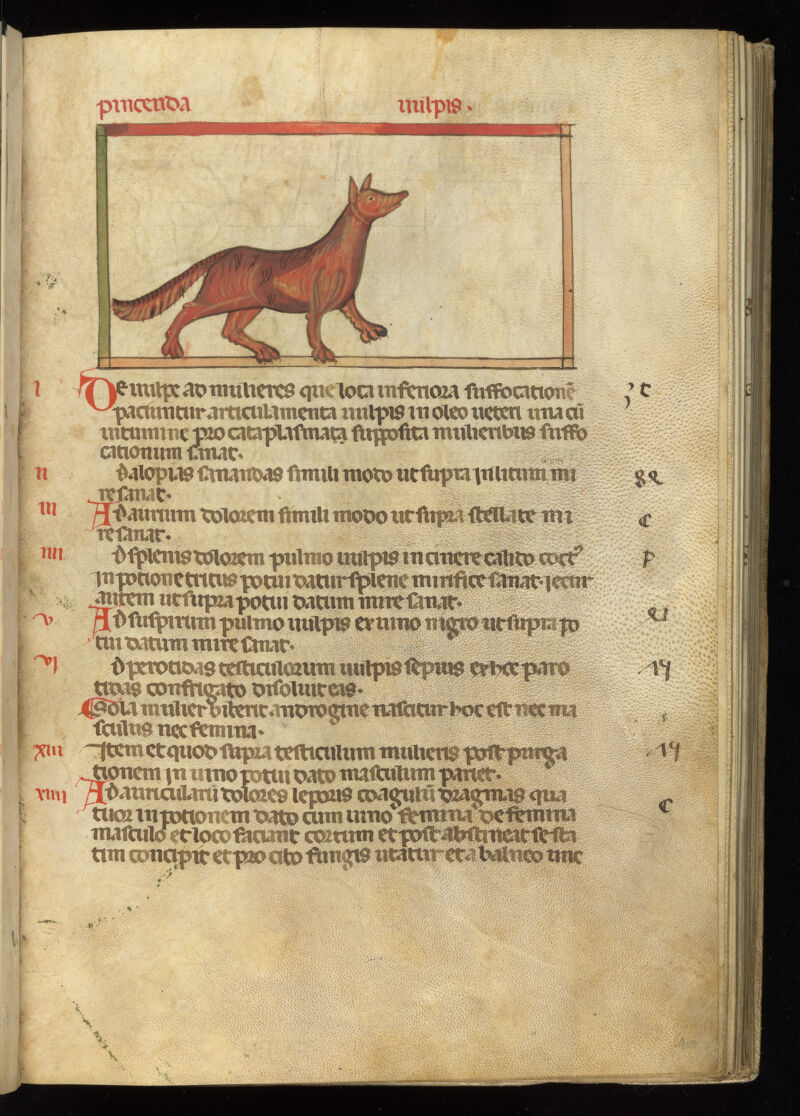 pincerida uulpis.
I De uulpe ad mulieres que loca inferiora suffocatione͂
paciuntur articulamenta uulpis in oleo ueteri una cu͂
uitumine pro cataplasmata supposita mulieribus suffo
cationum sanat.
II d alopias sanandas simili modo ut supra inlitum mi
re sanat.
III Ad aurium dolorem simili modo ut supra stellate mi
re sanat.
IIII d splenis dolorem pulmo uulpis in cinere calido coctꝰ
in potione tritus potui datur splene mirifice sanat. iecur
autem ut supra potui datum mire sanat.
V Ad suspirium pulmo uulpis ex uino nigro ut supra po
tui datum mire sanat.
VI d perotidas testiculorum uulpis sepius ex hoc paro
tidas confrigato disoluit eas.
Sola mulier biberit androgine nascitur hoc est nec ma
sculus nec femina.
XIII Item et quod supra testiculum mulieris post purga
tionem in uino potui dato masculum pariet.
XIIII Ad auricularu͂ dolores leporis coagulu͂ dragmas qua
tuor in potionem dato cum uino femina de femina
masculo et loco faciant coitum et post abstineat se sta
tim concipit et pro cito fungis utatur et a balneo unc